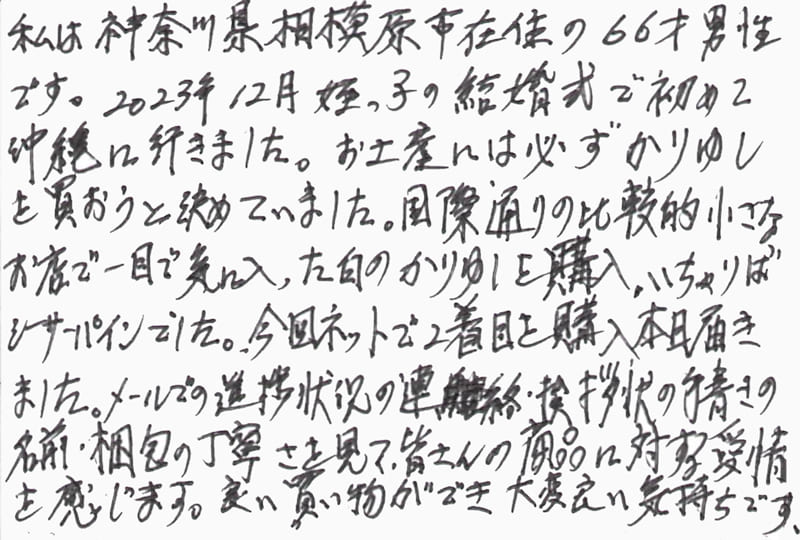 私は神奈川県相模原市在住の66才男性
です。2023年12月姪っ子の結婚式で初めて
沖縄に行きました。お土産には必ずかりゆし
を買おうと決めていました。国際通りの比較的小さな
お店で一目で気に入った白のかりゆしを購入。いちゃりば
シーサーパインでした。今回ネットで2着目を購入本日届き
ました。メールでの進捗状況の連絡・挨拶状の手書きの
名前・梱包の丁寧さを見て、皆さんの商品に対する愛情
を感じます。良い買い物ができ大変良い気持ちです。